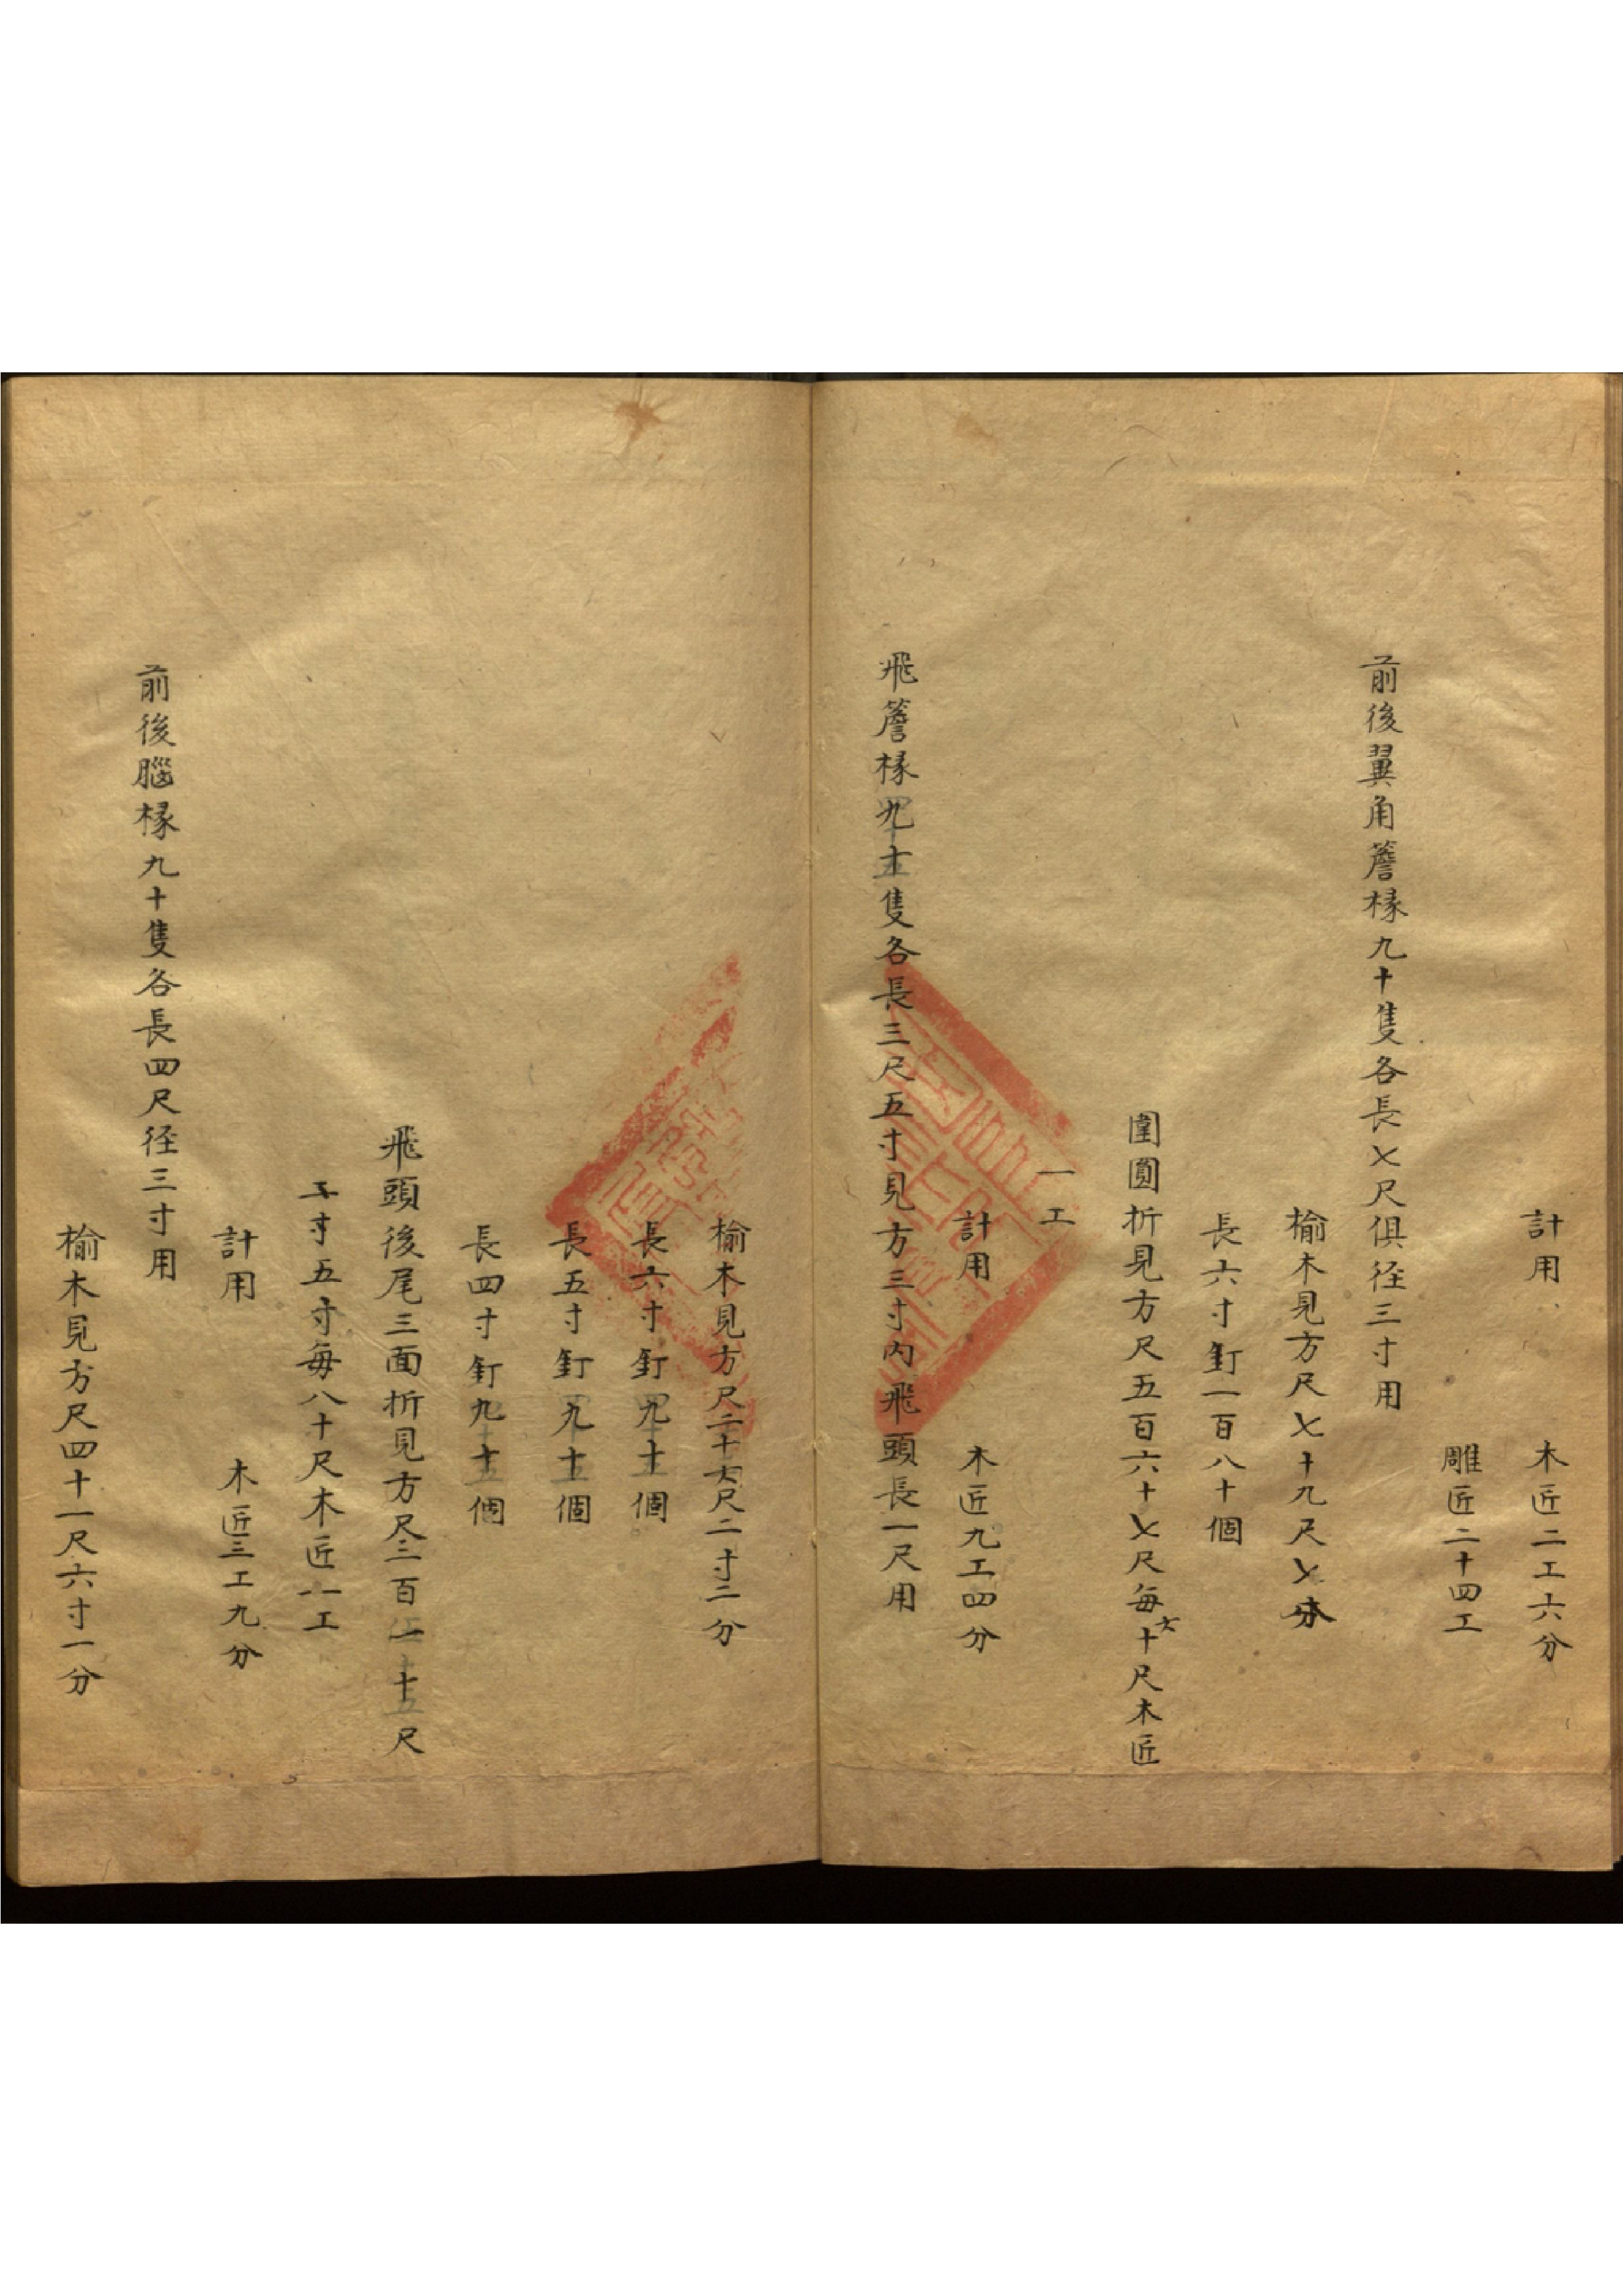 計用　木匠二工六分
雕匠二十四工
前後翼角簷椽九十隻各長七尺俱径三寸用
榆木見方尺七十九尺七分
長六寸釘一百八十個
圍圓折見方尺五百六十七尺每六十尺木匠
一工
計用　木匠九工四分
飛簷椽九十隻各長三尺五寸見方三寸內飛頭長一尺用
榆木見方尺二十六尺二寸二分
長六寸釘九十個
長五寸釘九十個
長四寸釘九十個
飛頭後尾三面折見方尺三百一十尺
五寸每八十尺木匠一工
計用　木匠三工九分
前後腦椽九十隻各長四尺径三寸用
榆木見方尺四十一尺六寸一分